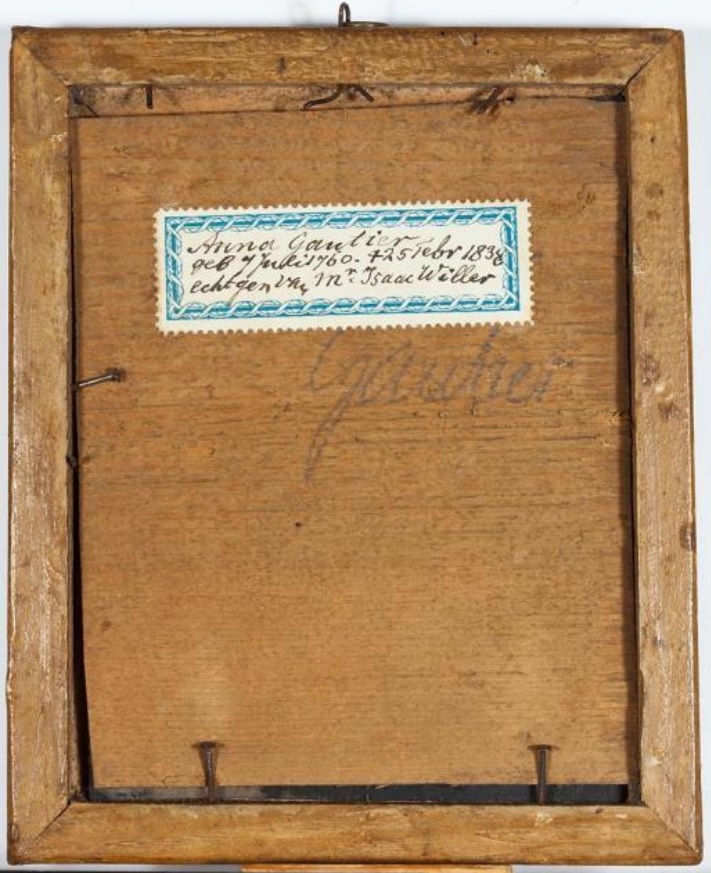 Anna Gautier
geb 7 Juli 1760. †25 Febr 1838
echtgen van Mr. Isaac Willer
Gautier